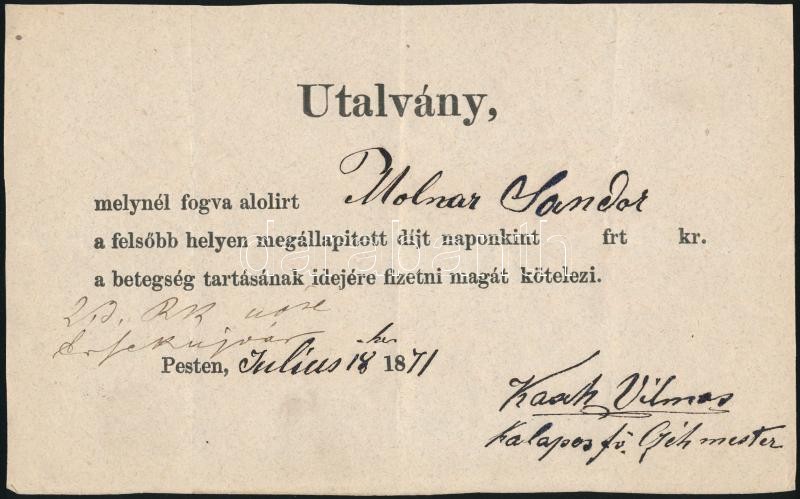 Utalvány,
melynél fogva alolirt Molnar Sandor
a felsőbb helyen megállapitott díjt naponkint frt kr.
a betegség tartásának idejére fizetni magát kötelezi.
Ersekujvár
Pesten, Julius 18 1871
Vilmos
Kalapos fő Czéhmester
darabanth